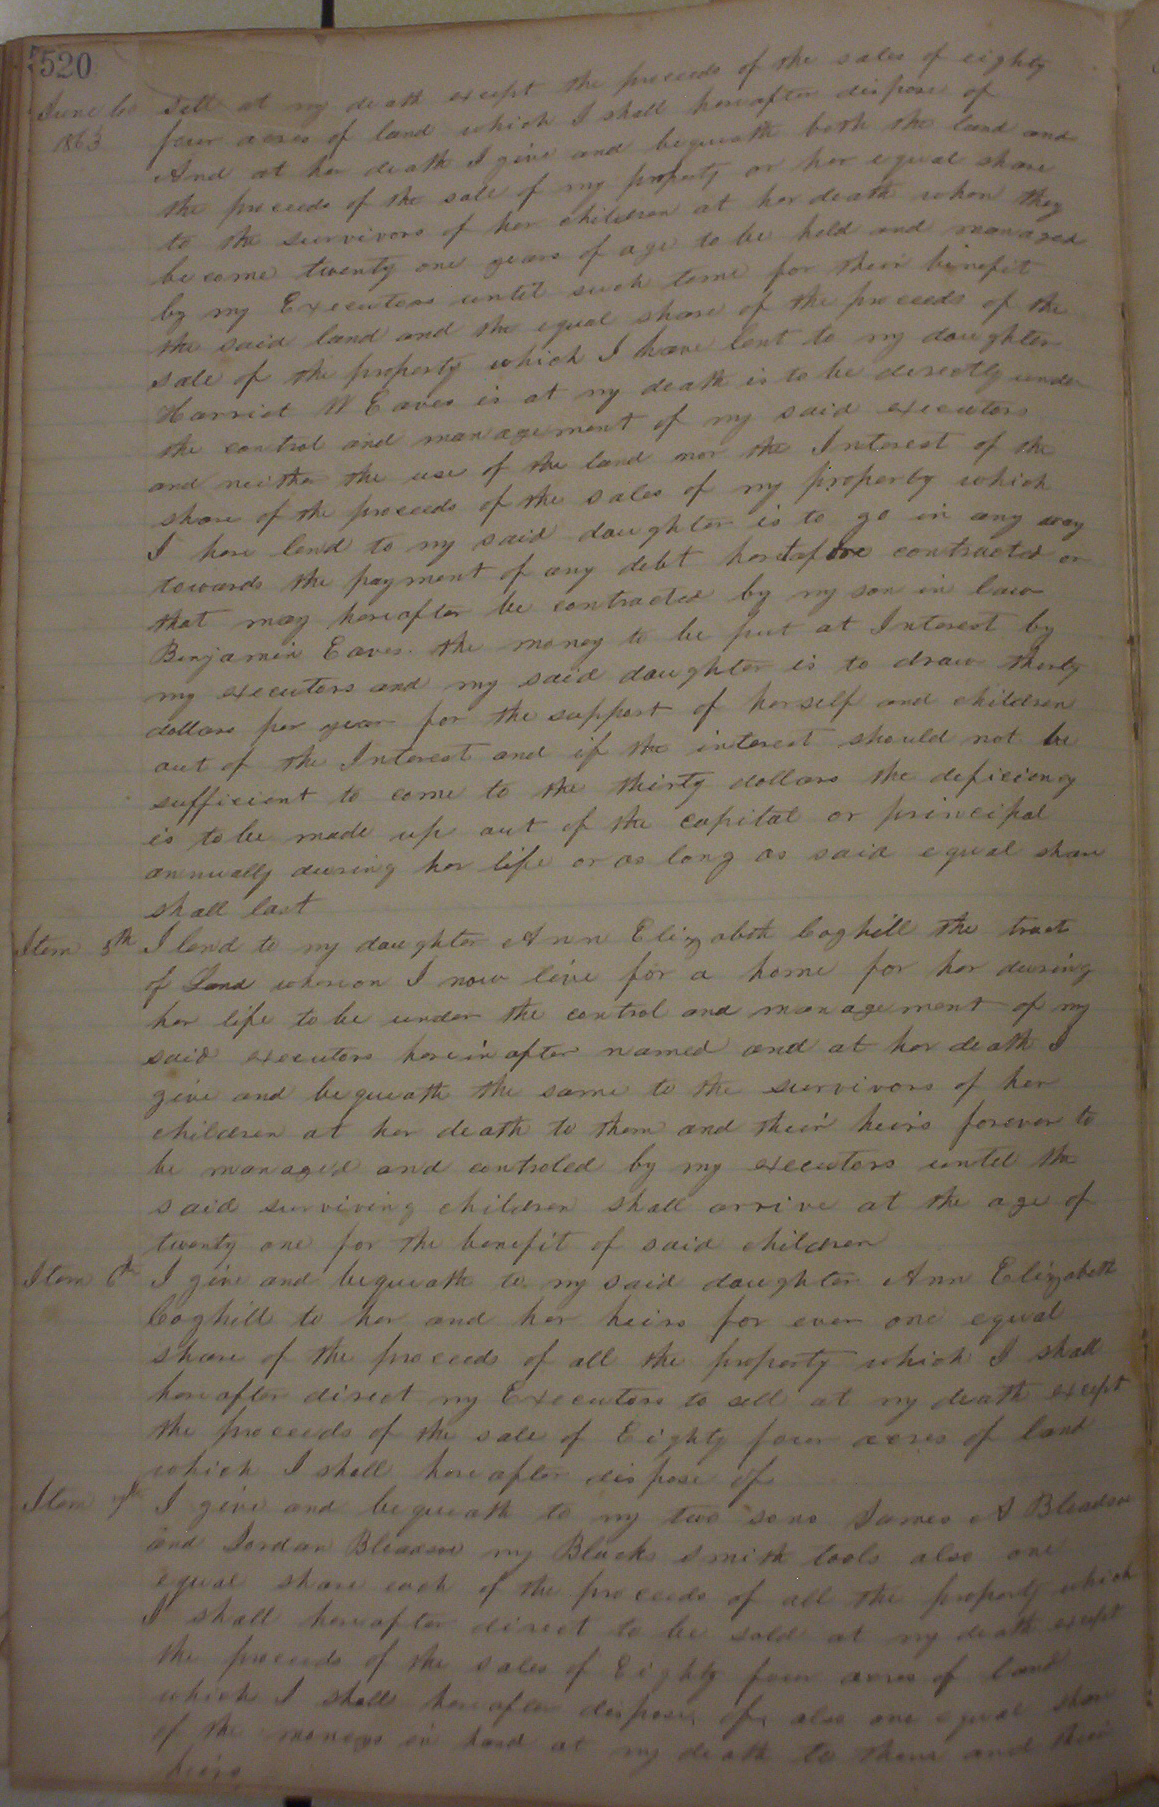 520
June 6
1863
sell at my death except the proceeds of the sales of eighty
four acres of land which I shall hereafter dispose of
And at her death I give and bequeath both the land and
the proceeds of the sale of my property or her equal share
to the survivors of her children at her death when they
become twenty one years of age to be held and managed
by my Executors until such tome for their benefit
the said land and the equal share of the proceeds of the
sale of the property which I have lent to my daughter
Harriet W Eaves is at my death is to be directly under
the control and management of my said executors
and neither the use of the land nor the Interest of the
share of the proceeds of the sales of my property which
I here lend to my said daughter is to go in any way
towards the payment of any debt heretofore contracted or
that may hereafter be contracted by my son in law
Benjamin Eaves. the money to be put at Interest by
my executors and my said daughter is to draw thirty
dollars per year for the support of herself and children
out of the Interest and if the interest should not be
sufficient to come to the thirty dollars the deficiency
is to be made up out of the capital or principal
annually during her life or as long as said equal share
shall last
Item 5th I lend to my daughter Ann Elizabeth Coghill the tract
of Land whereon I now live for a home for her during
her life to be under the control and management of my
said executors hereinafter named and at her death I
give and bequeath the same to the survivors of her
children at her death to them and their heirs forever to
be managed and controled by my executors until the
said surviving children shall arrive at the age of
twenty one for the benefit of said children
Item 6th I give and bequeath to my said daughter Ann Elizabeth
Coghill to her and her heirs for ever one equal
share of the proceeds of all the property which I shall
hereafter direct my Executors to sell at my death except
the proceeds of the sale of Eighty four acres of land
which I shall hereafter dispose of
Item 7th I give and bequeath to my two sons James A Bledsoe
and Jordan Bledsoe my Blacksmith tools also one
equal share each of the proceeds of all the property which
I shall hereafter direct to be sold at my death except
the proceeds of the sales of Eighty four acres of land
which I shall hereafter dispose of, also one equal share
of the moneys in hand at my death to them and their
heirs